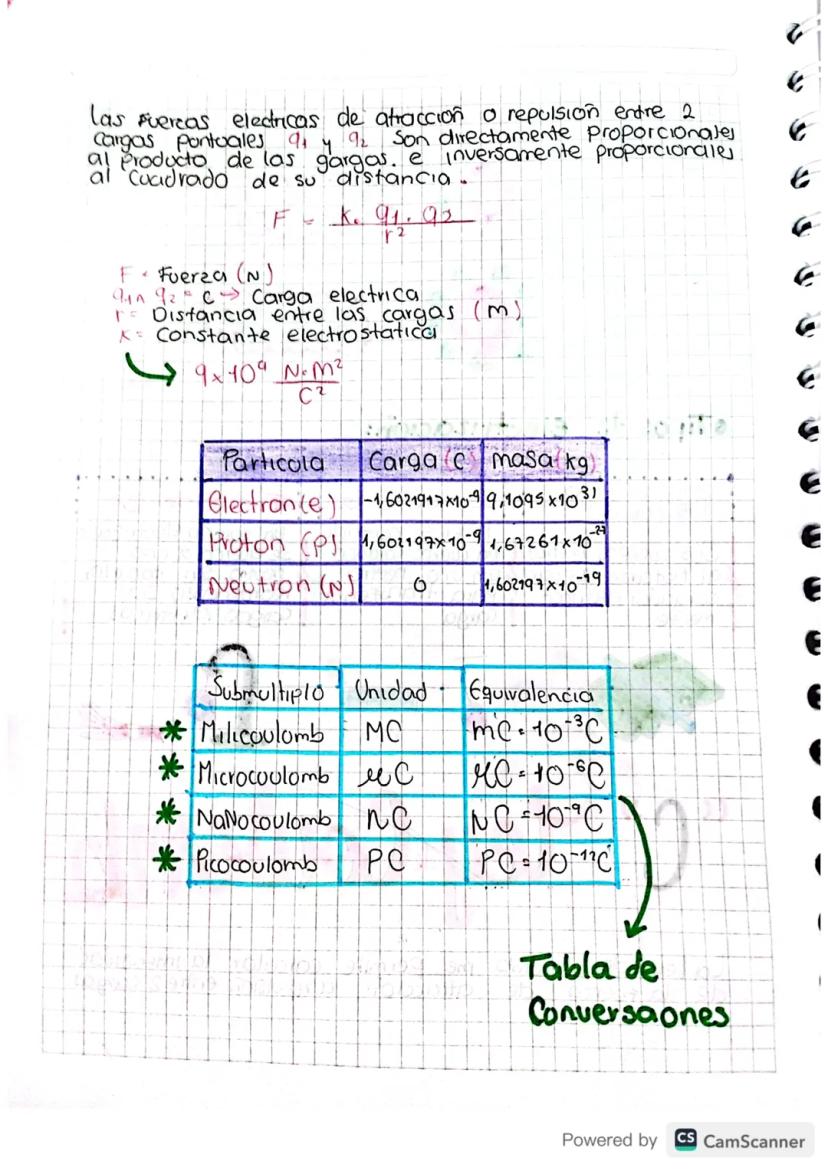 las fuercas electricas de atracción o repulsión entre 2
cargas pontuales q1 y q2 son directamente proporcionales
al producto de las gargas. e inversamente proporcionales
al cuadrado de su distancia.
F = K. q1. q2
r²
F = Fuerza (N)
q1 ∧ q2 = C → Carga electrica
r = Distancia entre las cargas (m)
K = Constante electrostatica
9x10⁹ N.m²
C²
Particula Carga (C) masa (kg)
Electron (e) -1,6021917x10⁻⁹ 9,1095x10³¹
Proton (P) 1,602197x10⁻⁹ 1,67261x10⁻²⁷
Neutron (N) 0 1,602197x10⁻¹⁹
Submultiplo Unidad Equivalencia
* Milicoulomb MC mC = 10⁻³C
* Microcoulomb μC μC = 10⁻⁶C
* NaNocoulomb nC NC = 10⁻⁹C
* Picocoulomb PC PC = 10⁻¹²C
Tabla de
Conversaones
Powered by CS CamScanner